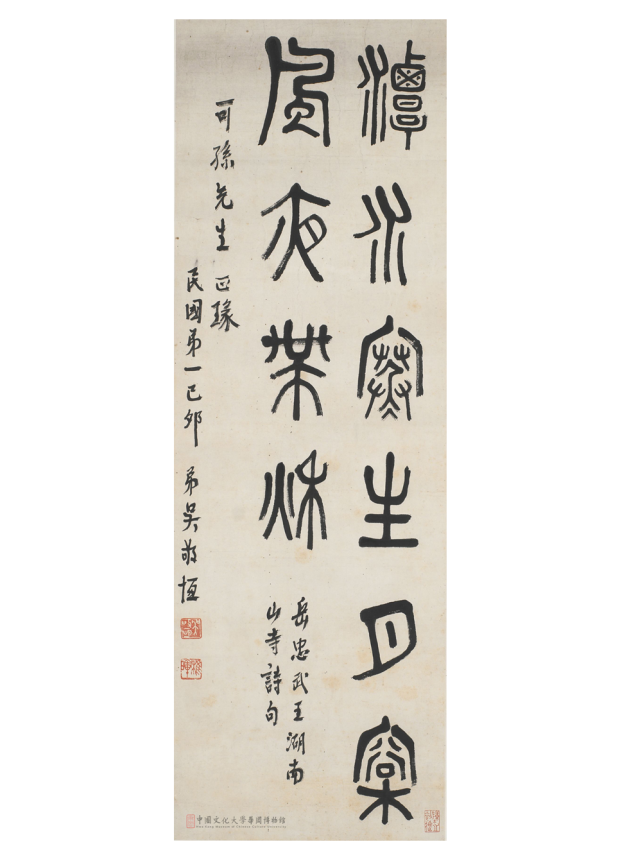 潭水寒生月松
風夜帶秋
岳忠武王湖南
山寺詩句
可孫先生 正瑑
民國第一己卯 弟吳敬恆
中國文化大學華岡博物館
Hwa Kang Museum of Chinese Culture University